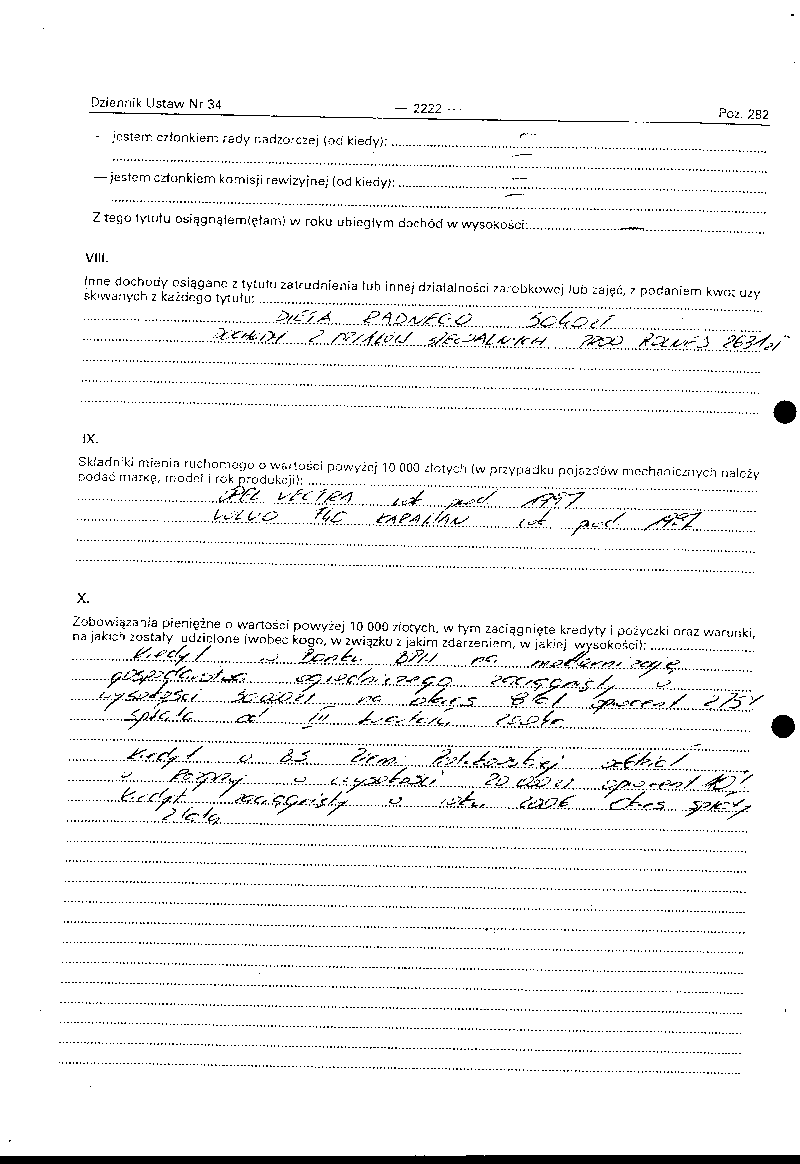 Dziennik Ustaw Nr 34 — 2222 — Poz. 282
- jestem członkiem rady nadzorczej (od kiedy): —
—
— jestem członkiem komisji rewizyjnej (od kiedy): —
—
Z tego tytułu osiągnąłem(ęłam) w roku ubiegłym dochód w wysokości: —
VIII.
Inne dochody osiągane z tytułu zatrudnienia lub innej działalności zarobkowej lub zajęć, z podaniem kwot uzy-
skiwanych z każdego tytułu:
DIETA RADNEGO
DOCHODY Z DZIAŁÓW SPECJALNYCH PROD ROLNEJ 2631 zł
IX.
Składniki mienia ruchomego o wartości powyżej 10 000 złotych (w przypadku pojazdów mechanicznych należy
podać markę, model i rok produkcji):
OPEL VECTRA rok prod 1997
VOLVO rok prod 1991
X.
Zobowiązania pieniężne o wartości powyżej 10 000 złotych, w tym zaciągnięte kredyty i pożyczki oraz warunki,
na jakich zostały udzielone (wobec kogo, w związku z jakim zdarzeniem, w jakiej wysokości):
Kredyt w Banku BPH na modernizację
gospodarstwa ogrodniczego zaciągnięty w
wysokości na okres 8 lat oprocent
spłata od III kwartału
Kredyt w BS Ziemi oddział
w w wysokości 20 000 zł oprocent 10%
Kredyt zaciągnięty w roku 2006 okres spłaty
2 lata